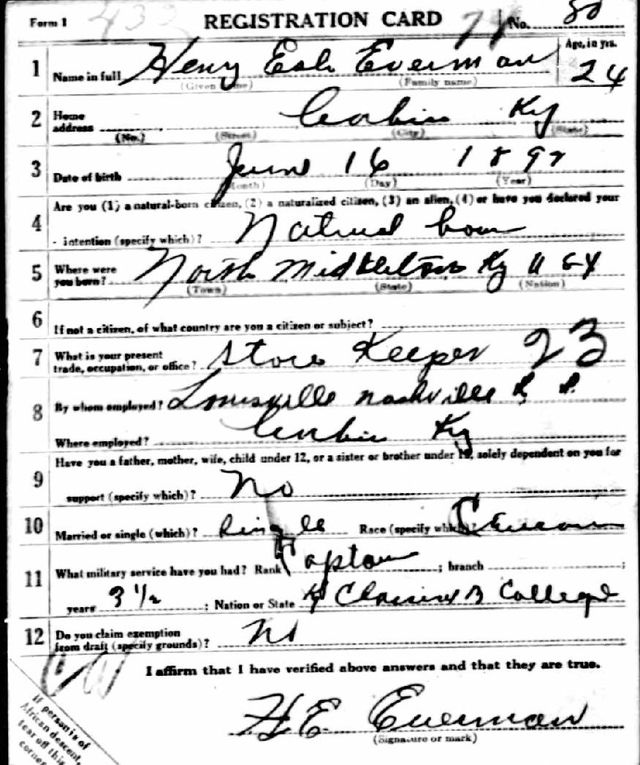 Form 1 432 REGISTRATION CARD 71 No. 80
1 Name in full Henry Esh Everman Age, in yrs. 24
(Given name) (Family name)
2 Home address Corbin Ky
(No.) (Street) (City) (State)
3 Date of birth June 16 1892
(Month) (Day) (Year)
4 Are you (1) a natural-born citizen, (2) a naturalized citizen, (3) an alien, (4) or have you declared your
intention (specify which)? Natural born
5 Where were you born? North Middletown Ky U S A
(Town) (State) (Nation)
6 If not a citizen, of what country are you a citizen or subject?
7 What is your present trade, occupation, or office? Store Keeper 23
8 By whom employed? Louisville Nashville R R
Where employed? Corbin Ky
9 Have you a father, mother, wife, child under 12, or a sister or brother under 12, solely dependent on you for
support (specify which)? No
10 Married or single (which)? Single Race (specify which)?
11 What military service have you had? Rank ; branch ;
years 3 1/2 ; Nation or State College
12 Do you claim exemption from draft (specify grounds)? No
I affirm that I have verified above answers and that they are true.
H E Everman
(Signature or mark)
If person is of
African descent,
tear off this
corner